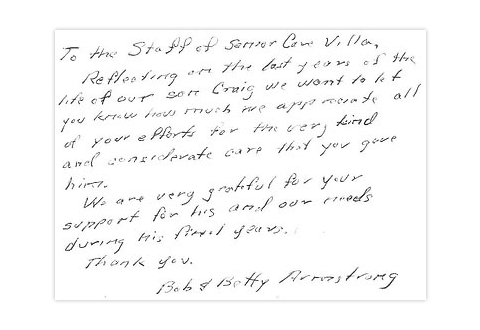 To the Staff of Senior Care Villa,
Reflecting on the last years of the
life of our son Craig we want to let
you know how much we appreciate all
of your efforts for the very kind
and considerate care that you gave
him.
We are very grateful for your
support for his and our needs
during his final years.
Thank you.
Bob & Betty Armstrong